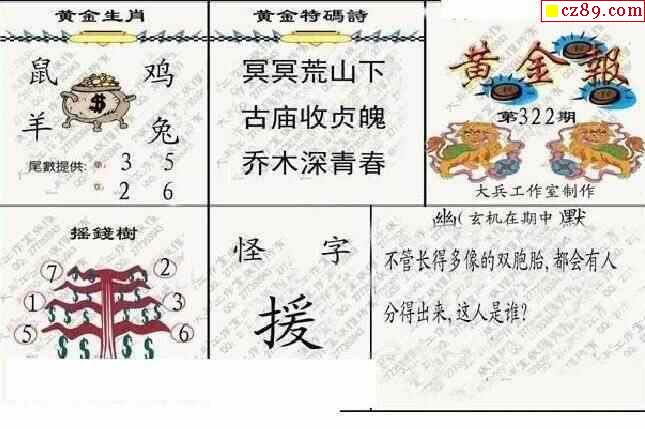 cz89.com
黄金生肖
鼠 鸡
羊 兔
$
尾數提供: 3 5
2 6
黄金特码詩
冥冥荒山下
古庙收贞魄
乔木深青春
黄金報
第322期
大兵工作室制作
摇錢樹
7 2
1 3
5 6
$ $ $ $ $ $
怪 字
援
幽(玄机在期中)默
不管长得多像的双胞胎,都会有人
分得出来,这人是谁?